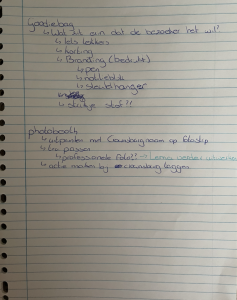 Goodiebag
↳ Wat zit erin dat de bezoeker het wil?
↳ Iets lekkers
↳ korting
↳ Branding (bedrukt)
↳ pen
↳ notitieblok
↳ sleutelhanger
↳ stukje stof!!
photobooth
↳ uitprinten met Counsburgroom op fotoslip
↳ Lou passen
↳ professionele foto!? →
↳ actie maken bij taggen